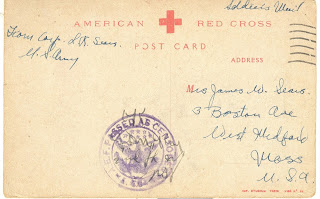 Soldiers Mail
AMERICAN RED CROSS
POST CARD
From Corp. L R Sears.
U.S. Army
ADDRESS
Mrs James W. Sears.
3 Boston Ave
West Medford
Mass
U.S.A
PASSED AS CENSORED